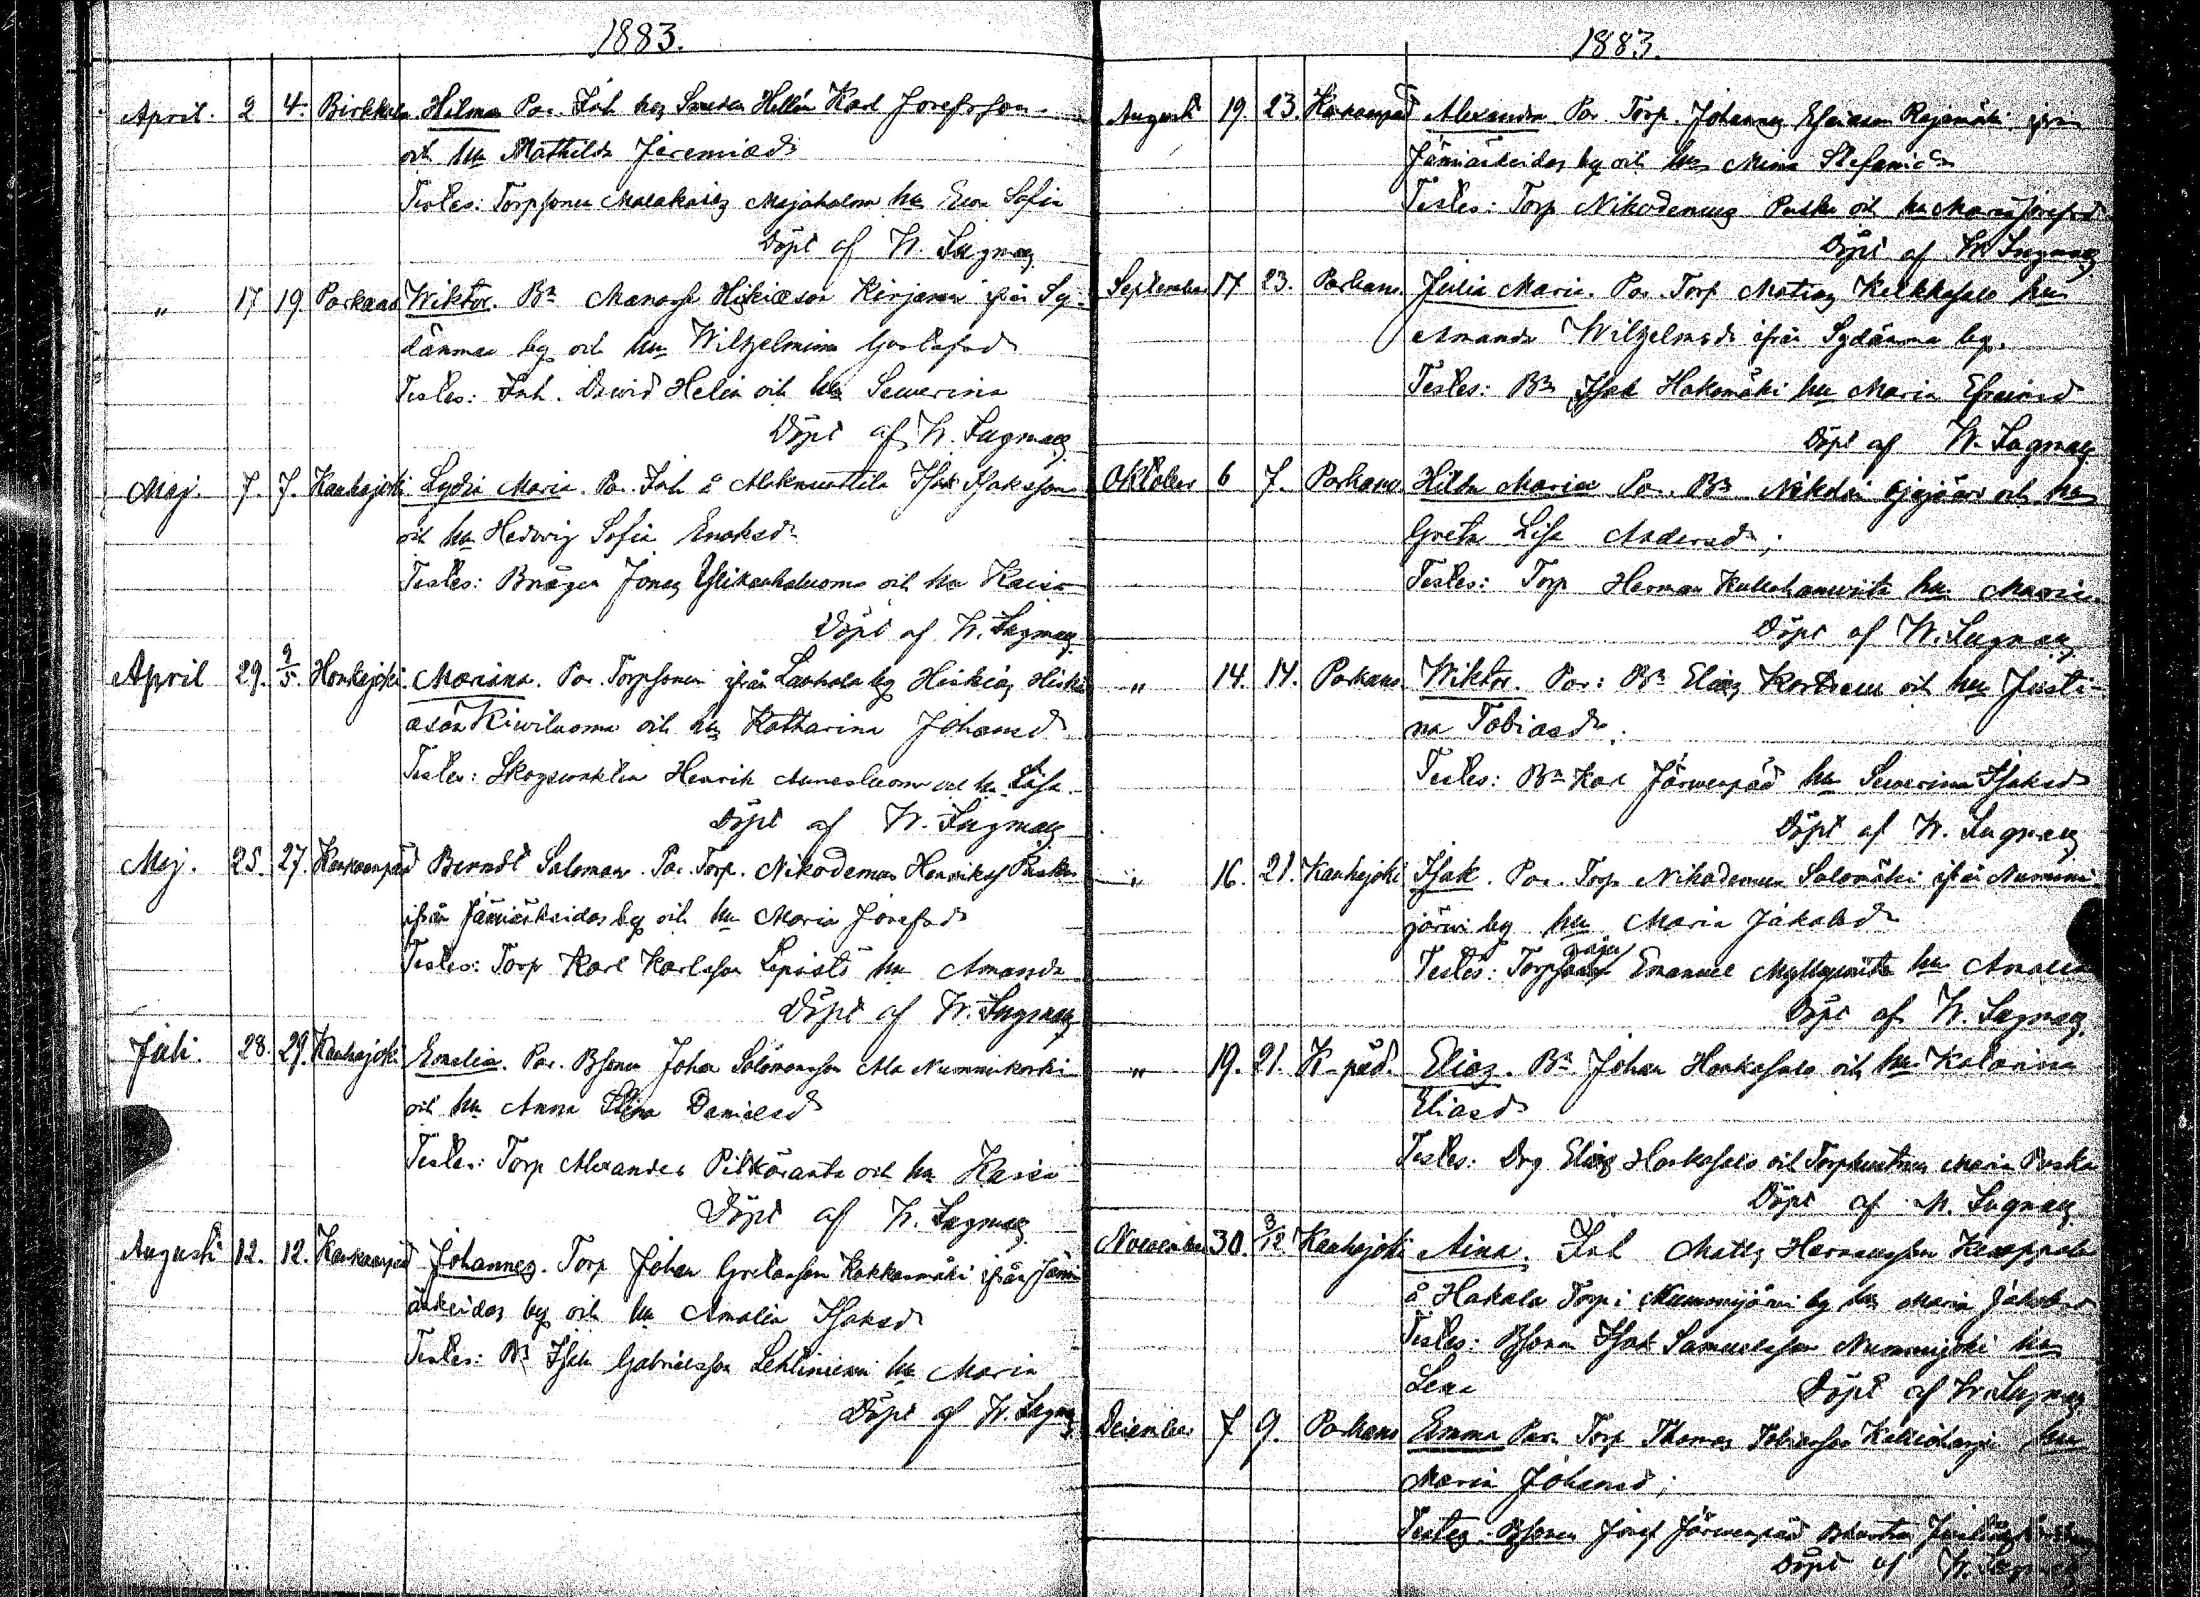 1883.
April. 2 4. Birkkala Hilma Par. Inh. hos Smeden Hellén Karl Josefsson
och hu Mathilda Jeremiasdr
Testes: Torpsonen Malakias Majahalme hu Eva Sofia
Döpt af W. Lagman
" 17 19. Parkano Wiktor. Bn Manasse Hiskiasson Kinjanen ifrån Sy-
dänmaa by och hu Wilhelmina Gustafsdr
Testes: Inh. David Helin och hu Sewerina
Döpt af W. Lagman
Maj. 7. 7. Kauhajoki Lydia Maria. Par. Inh å Alaknuuttila Isak Isaksson
och hu Hedvig Sofia Enoksdr
Testes: Bnägen Jonas Ylikauhaluoma och hu Kaisa
Döpt af W. Lagman
April 29. 9/5. Honkajoki Mariana. Par. Torpsonen ifrån Lauhala by Hiskias Hiski-
asson Kiwiluoma och hu Katharina Johansdr
Testes: Skogsvaktın Henrik Aunesluoma och hu Lisa
Döpt af W. Lagman
Maj. 25. 27. Kankaanpää Berndt Salomon. Par. Torp. Nikodemus Henriks Puska
ifrån Jämiäskeidas by och hu Maria Josefsdr
Testes: Torp Karl Karlsson Lepistö hu Amanda
Döpt af W. Lagman
Juli. 28. 29. Kauhajoki Emelia. Par. Bsonen Johan Salomonsson Ala Nummikoski
och hu Anna Stina Danielsdr
Testes: Torp Alexander Pitkäranta och hu Kaisa
Döpt af W. Lagman
Augusti 12. 12. Kankaanpää Johannes. Torp Johan Gretasson Kokkomäki ifrån Jämi-
äskeidas by och hu Amalia Isaksdr
Testes: Bn Isak Gabrielsson Lehtiniemi hu Maria
Döpt af W. Lagman
1883.
Augusti 19. 23. Kankaanpää Alexandra. Par. Torp. Johannes Efraimsson Rajamäki ifrån
Jämiäskeidas by och hu Mina Stefansdr
Testes: Torp Nikodemus Puska och hu Maria Josefsd
Döpt af W. Lagman
September 17 23. Parkano. Julia Maria. Par. Torp Matias Kelkkasalo hu
Amanda Wilhelmsdr ifrån Sydänmaa by.
Testes: Bn Isak Hakomäki hu Maria Efraimsd
Döpt af W. Lagman
Oktober 6 7. Parkano Hilda Maria Par. Bn Nikolai Ojajärvi och hu
Greta Lisa Andersdr;
Testes: Torp Herman hu Maria
Döpt af W. Lagman
" 14. 14. Parkano Wiktor. Par: Bn Elias och hu Justi-
na Tobiasdr.
Testes: Bn Karl Järwenpää hu Sewerina Isaksdr
Döpt af W. Lagman
" 16. 21. Kauhajoki Isak. Par. Torp Nikodemus Salomäki ifrån Nummi-
järwi by hu Maria Jakobsdr
Testes: Torp Emanuel Myllyniita hu Amalia
Döpt af W. Lagman
" 19. 21. K-pää. Elias. Bn Johan Honkasalo och hu Katarina
Eliasdr
Testes: Drg Elias Honkasalo och Torphustrun Maria Puska
Döpt af W. Lagman
November 30. 3/12 Kauhajoki Aina. Inh Matts Hermansson
å Hakala Torp i Nummijärvi by hu Maria Jakobsd
Testes: Bsonen Isak Samuelsson Nummijoki hu
Lena
Döpt af W. Lagman
December 7 9. Parkano Emma Par. Torp Thomas Tobiasson hu
Maria Johansd;
Testes. Bsonen Josef Järwenpää
Döpt af W. Lagman